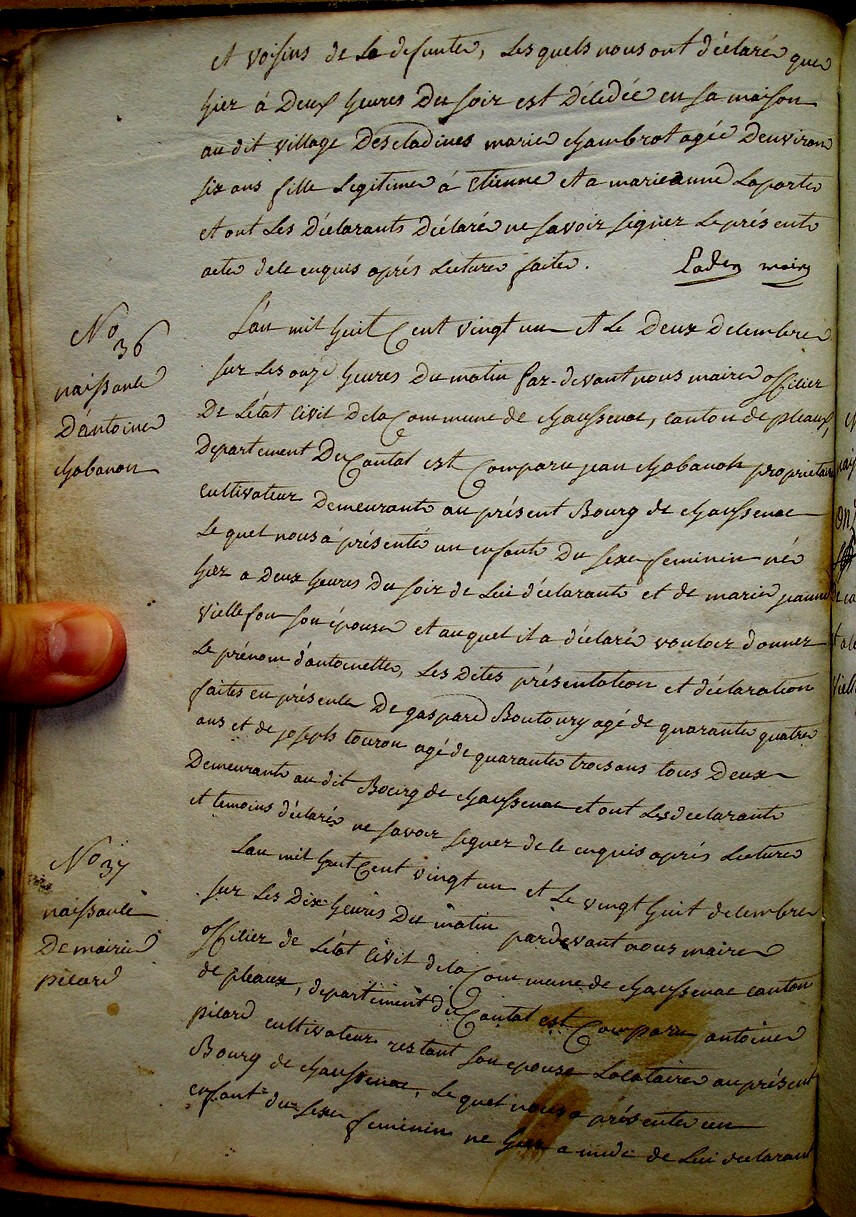 et voisins de la defunte, lesquels nous ont déclaré que
hier à deux heures du soir est décédée en sa maison
au dit village Descladines marie chambrot agée denviron
six ans fille legitime à Etienne et a marieanne Laporte
et ont les déclarants déclaré ne savoir signer le présent
acte de ce enquis après lecture faite. maire
No 36
naissance
D'antoine
chabanon
L'an mil huit Cent vingt un et le deux decembre
sur les onze heures du matin par-devant nous maire officier
De L'état Civil de la Commune de chaussenac, canton de pleaux,
Departement du Cantal est Comparu jean chabanon proprietaire
cultivateur Demeurant au présent Bourg de chaussenac
Lequel nous a présenté un enfant du sexe feminin né
hier a deux heures du soir de Lui déclarant et de marie jeanne
viellefon son épouse et auquel il a déclaré vouloir donner
Le prénom d'antoinette, Les dites présentation et déclaration
faites en présence De gaspard Boutoury agé de quarante quatre
ans et de joseph touron agé de quarante trois ans tous Deux
Demeurant au dit Bourg de chaussenac et ont Les declarant
et temoins déclaré ne savoir signer de ce enquis après Lecture
No 37
naissance
De mairie
picard
L'an mil huit Cent vingt un et Le vingt huit decembre
sur Les Dix heures Du matin pardevant nous maire
officier de L'état Civil de la Commune de chaussenac canton
de pleaux, departiment du Cantal est Comparu antoine
picard cultivateur restant son epouse Locataire au présent
Bourg de chaussenac, Lequel nous a présenter un
enfant du sexe feminin né hier a midi de Lui declarant